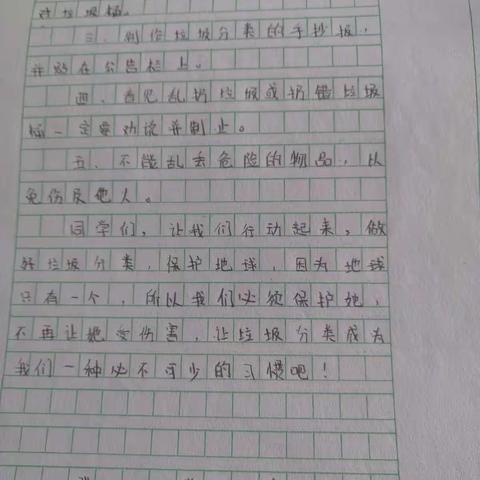 对垃圾桶。
三、制作垃圾分类的手抄报，
并贴在公告栏上。
四、看见乱扔垃圾或扔错垃圾
桶一定要劝说并制止。
五、不能乱丢危险的物品，以
免伤及他人。
同学们，让我们行动起来，做
好垃圾分类，保护地球，因为地球
只有一个，所以我们必须保护她，
不再让她受伤害，让垃圾分类成为
我们一种必不可少的习惯吧！